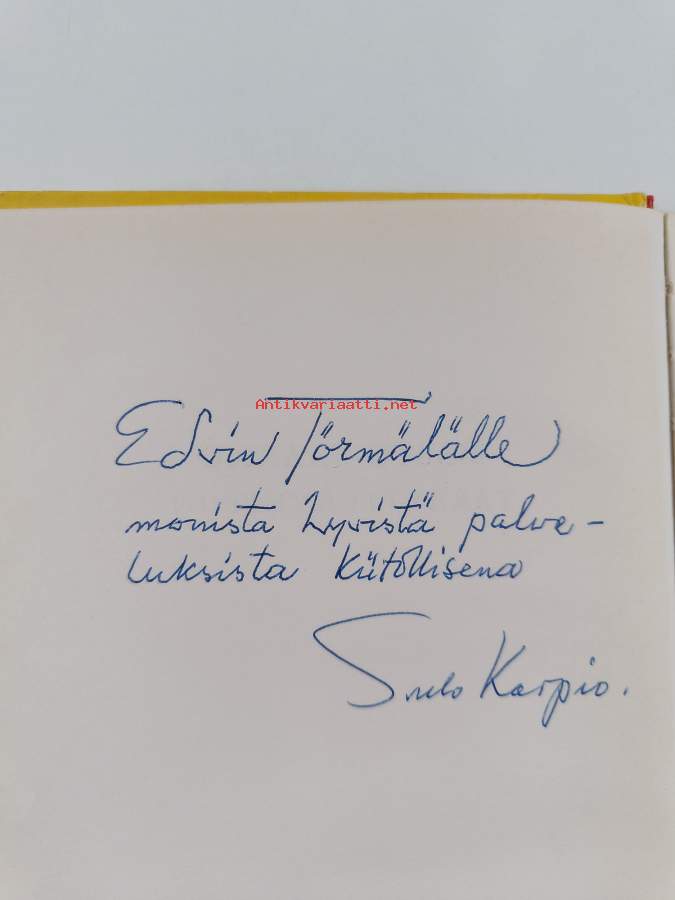 Antikvariaatti.net
Edvin Törmälälle
monista hyvistä palve-
luksista kiitollisena
Sulo Karpio.